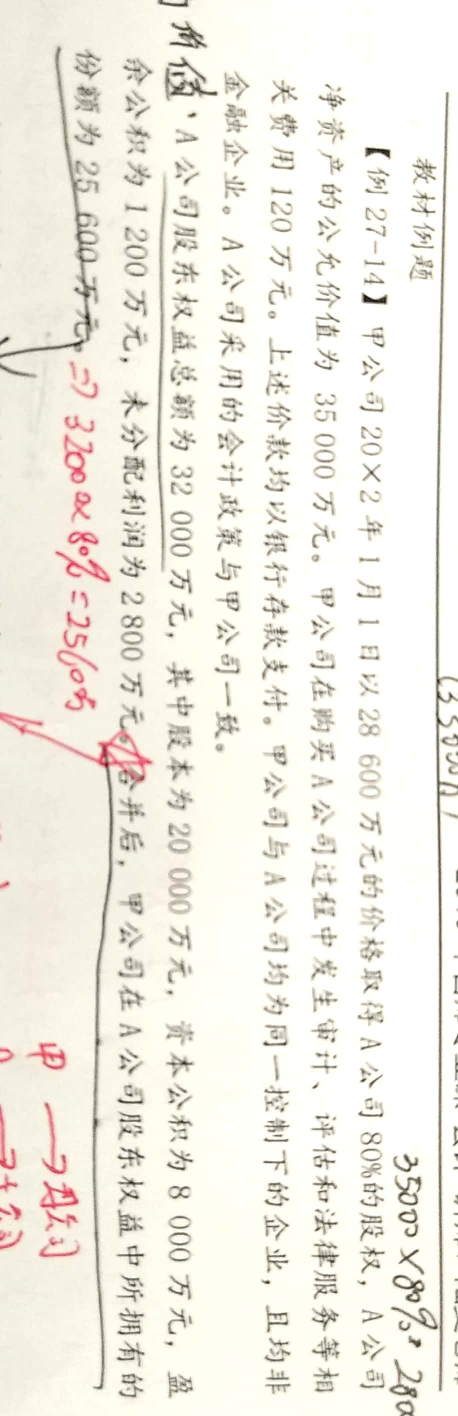 教材例题
35000×80%=280
【例27-14】甲公司20×2年1月1日以28 600万元的价格取得A公司80%的股权，A公司
净资产的公允价值为35 000万元。甲公司在购买A公司过程中发生审计、评估和法律服务等相
关费用120万元。上述价款均以银行存款支付。甲公司与A公司均为同一控制下的企业，且均非
金融企业。A公司采用的会计政策与甲公司一致。
价值、A公司股东权益总额为32 000万元，其中股本为20 000万元，资本公积为8 000万元，盈
余公积为1 200万元，未分配利润为2 800万元。合并后，甲公司在A公司股东权益中所拥有的
份额为25 600万元。=> 32000×80%=25600
甲